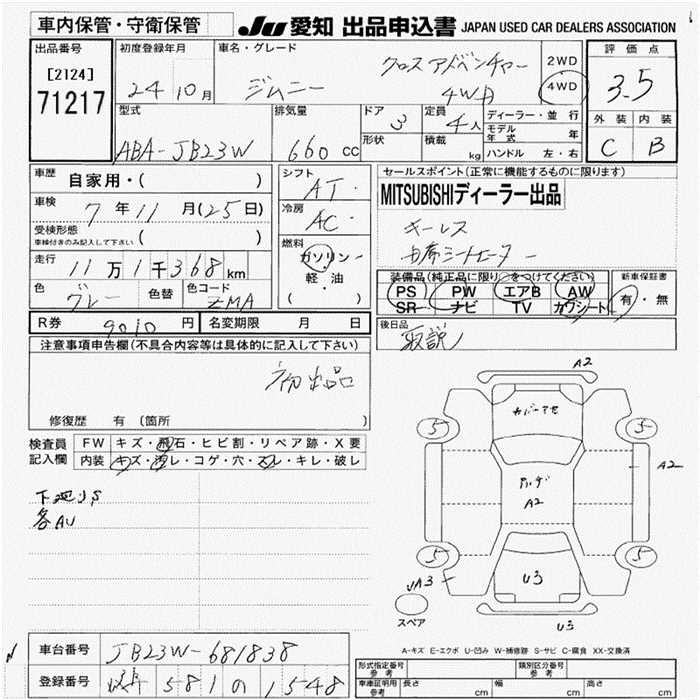 車内保管・守衛保管 JU 愛知 出品申込書 JAPAN USED CAR DEALERS ASSOCIATION
出品番号 初度登録年月 車名・グレード 評価点
[2124] 24 10月 ジムニー クロスアドベンチャー 4WD 2WD 4WD 3.5
71217
型式 排気量 ドア 定員 ディーラー・並行 外装 内装
ABA-JB23W 660 cc 3 4人 モデル年式 年 C B
形状 積載 kg ハンドル 左・右
車歴 自家用・( ) シフト AT セールスポイント(正常に機能するものに限ります)
車検 7年11月(25日) 冷房 AC MITSUBISHIディーラー出品
受検形態 車検付きのみ記入して下さい ( ) キーレス
燃料 ガソリン 軽油 ( )
走行 11万1千368km
装備品(純正品に限り○をつけてください) 新車保証書
色 グレー 色替 色コード ZMA PS PW エアB AW 有・無
SR ナビ TV カワシート
R券 9010円 名変期限 月 日 後日品
取説
注意事項申告欄(不具合内容等は具体的に記入して下さい)
初出品
修復歴 有 (箇所
検査員記入欄 FW キズ・飛石・ヒビ割・リペア跡・X要
内装 キズ・汚レ・コゲ・穴・スレ・キレ・破レ
下廻りS
各AU
A2
カバーアセ
5 5
A2
A2
5 5
U3
UA3
スペア
U3
A-キズ E-エクボ U-凹み W-補修跡 S-サビ C-腐食 XX-交換済
車台番号 JB23W-681838
登録番号 岐阜 581 の 1548
形式指定番号 参考 類別区分番号 参考
車庫証明用 参考 長さ cm 幅 cm 高さ cm